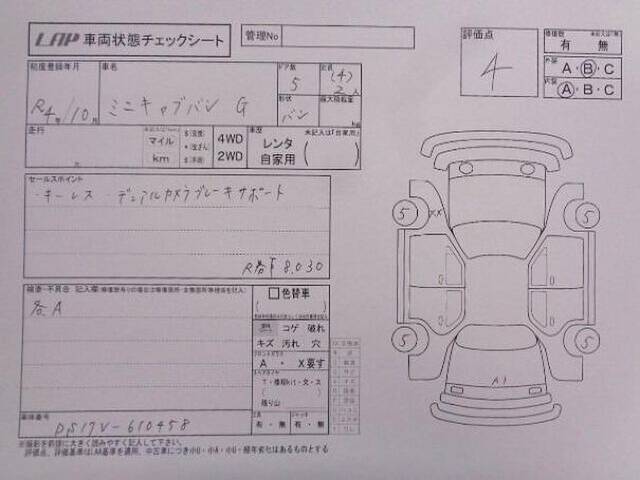 LAP 車両状態チェックシート
管理No
評価点
4
修復歴
有 ・ 無
外装 A・B・C
内装 A・B・C
初度登録年月
R4年/10月
車名
ミニキャブバン G
ドア数
5
定員
(4)
2人
形状
バン
最大積載量
kg
走行
マイル
km
4WD
2WD
車歴
未記入は「自家用」
レンタ
自家用
セールスポイント
・キーレス ・デュアルカメラブレーキサポート
R券¥8,030
各A
色替車
コゲ 破れ
キズ 汚れ 穴
フロントガラス
A ・ X要す
残り山
有・無 有・無
車体番号
DS17V-610458
5
XX
5
5
5
A1
※撮影を前提に大きく読みやすく記入して下さい。
評価点、評価基準はLAP基準を適用、中古車につき小U・小A・小G・経年劣化はあるものとする